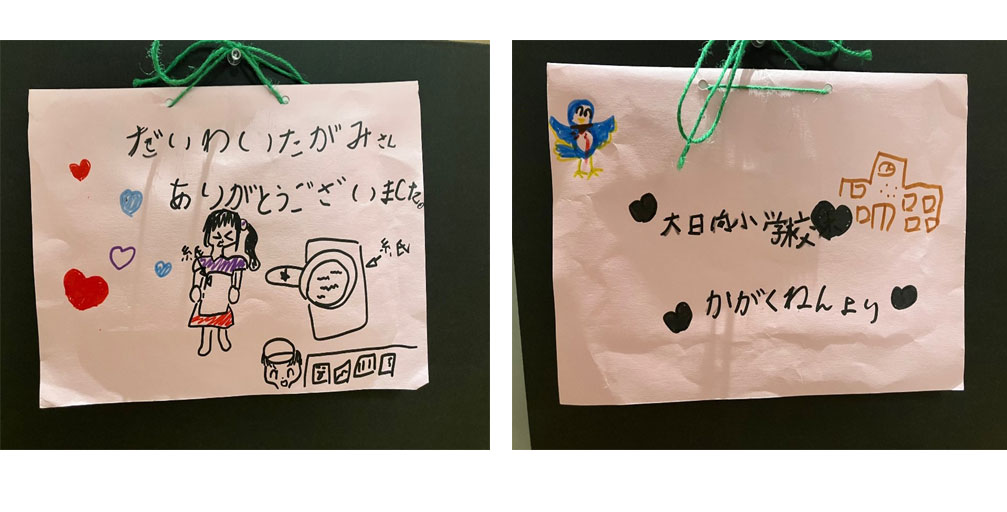 だいわいたがみさん
ありがとうございました。
紙
紙
大日向小学校
かがくねんより